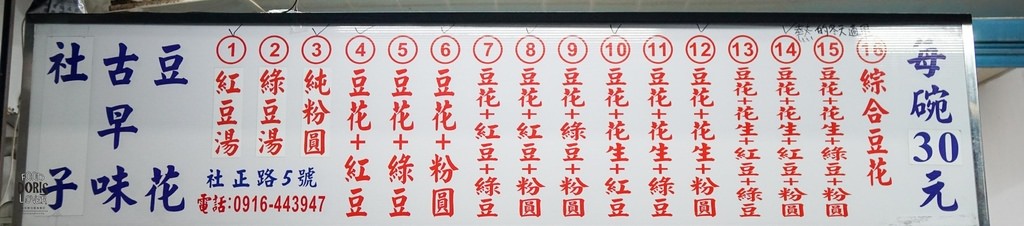 社子
古早味
豆花
① 紅豆湯
② 綠豆湯
③ 純粉圓
④ 豆花+紅豆
⑤ 豆花+綠豆
⑥ 豆花+粉圓
⑦ 豆花+紅豆+綠豆
⑧ 豆花+紅豆+粉圓
⑨ 豆花+綠豆+粉圓
⑩ 豆花+花生+紅豆
⑪ 豆花+花生+綠豆
⑫ 豆花+花生+粉圓
⑬ 豆花+花生+紅豆+綠豆
⑭ 豆花+花生+紅豆+粉圓
⑮ 豆花+花生+綠豆+粉圓
⑯ 綜合豆花
每碗30元
社正路5號
電話:0916-443947
DORIS